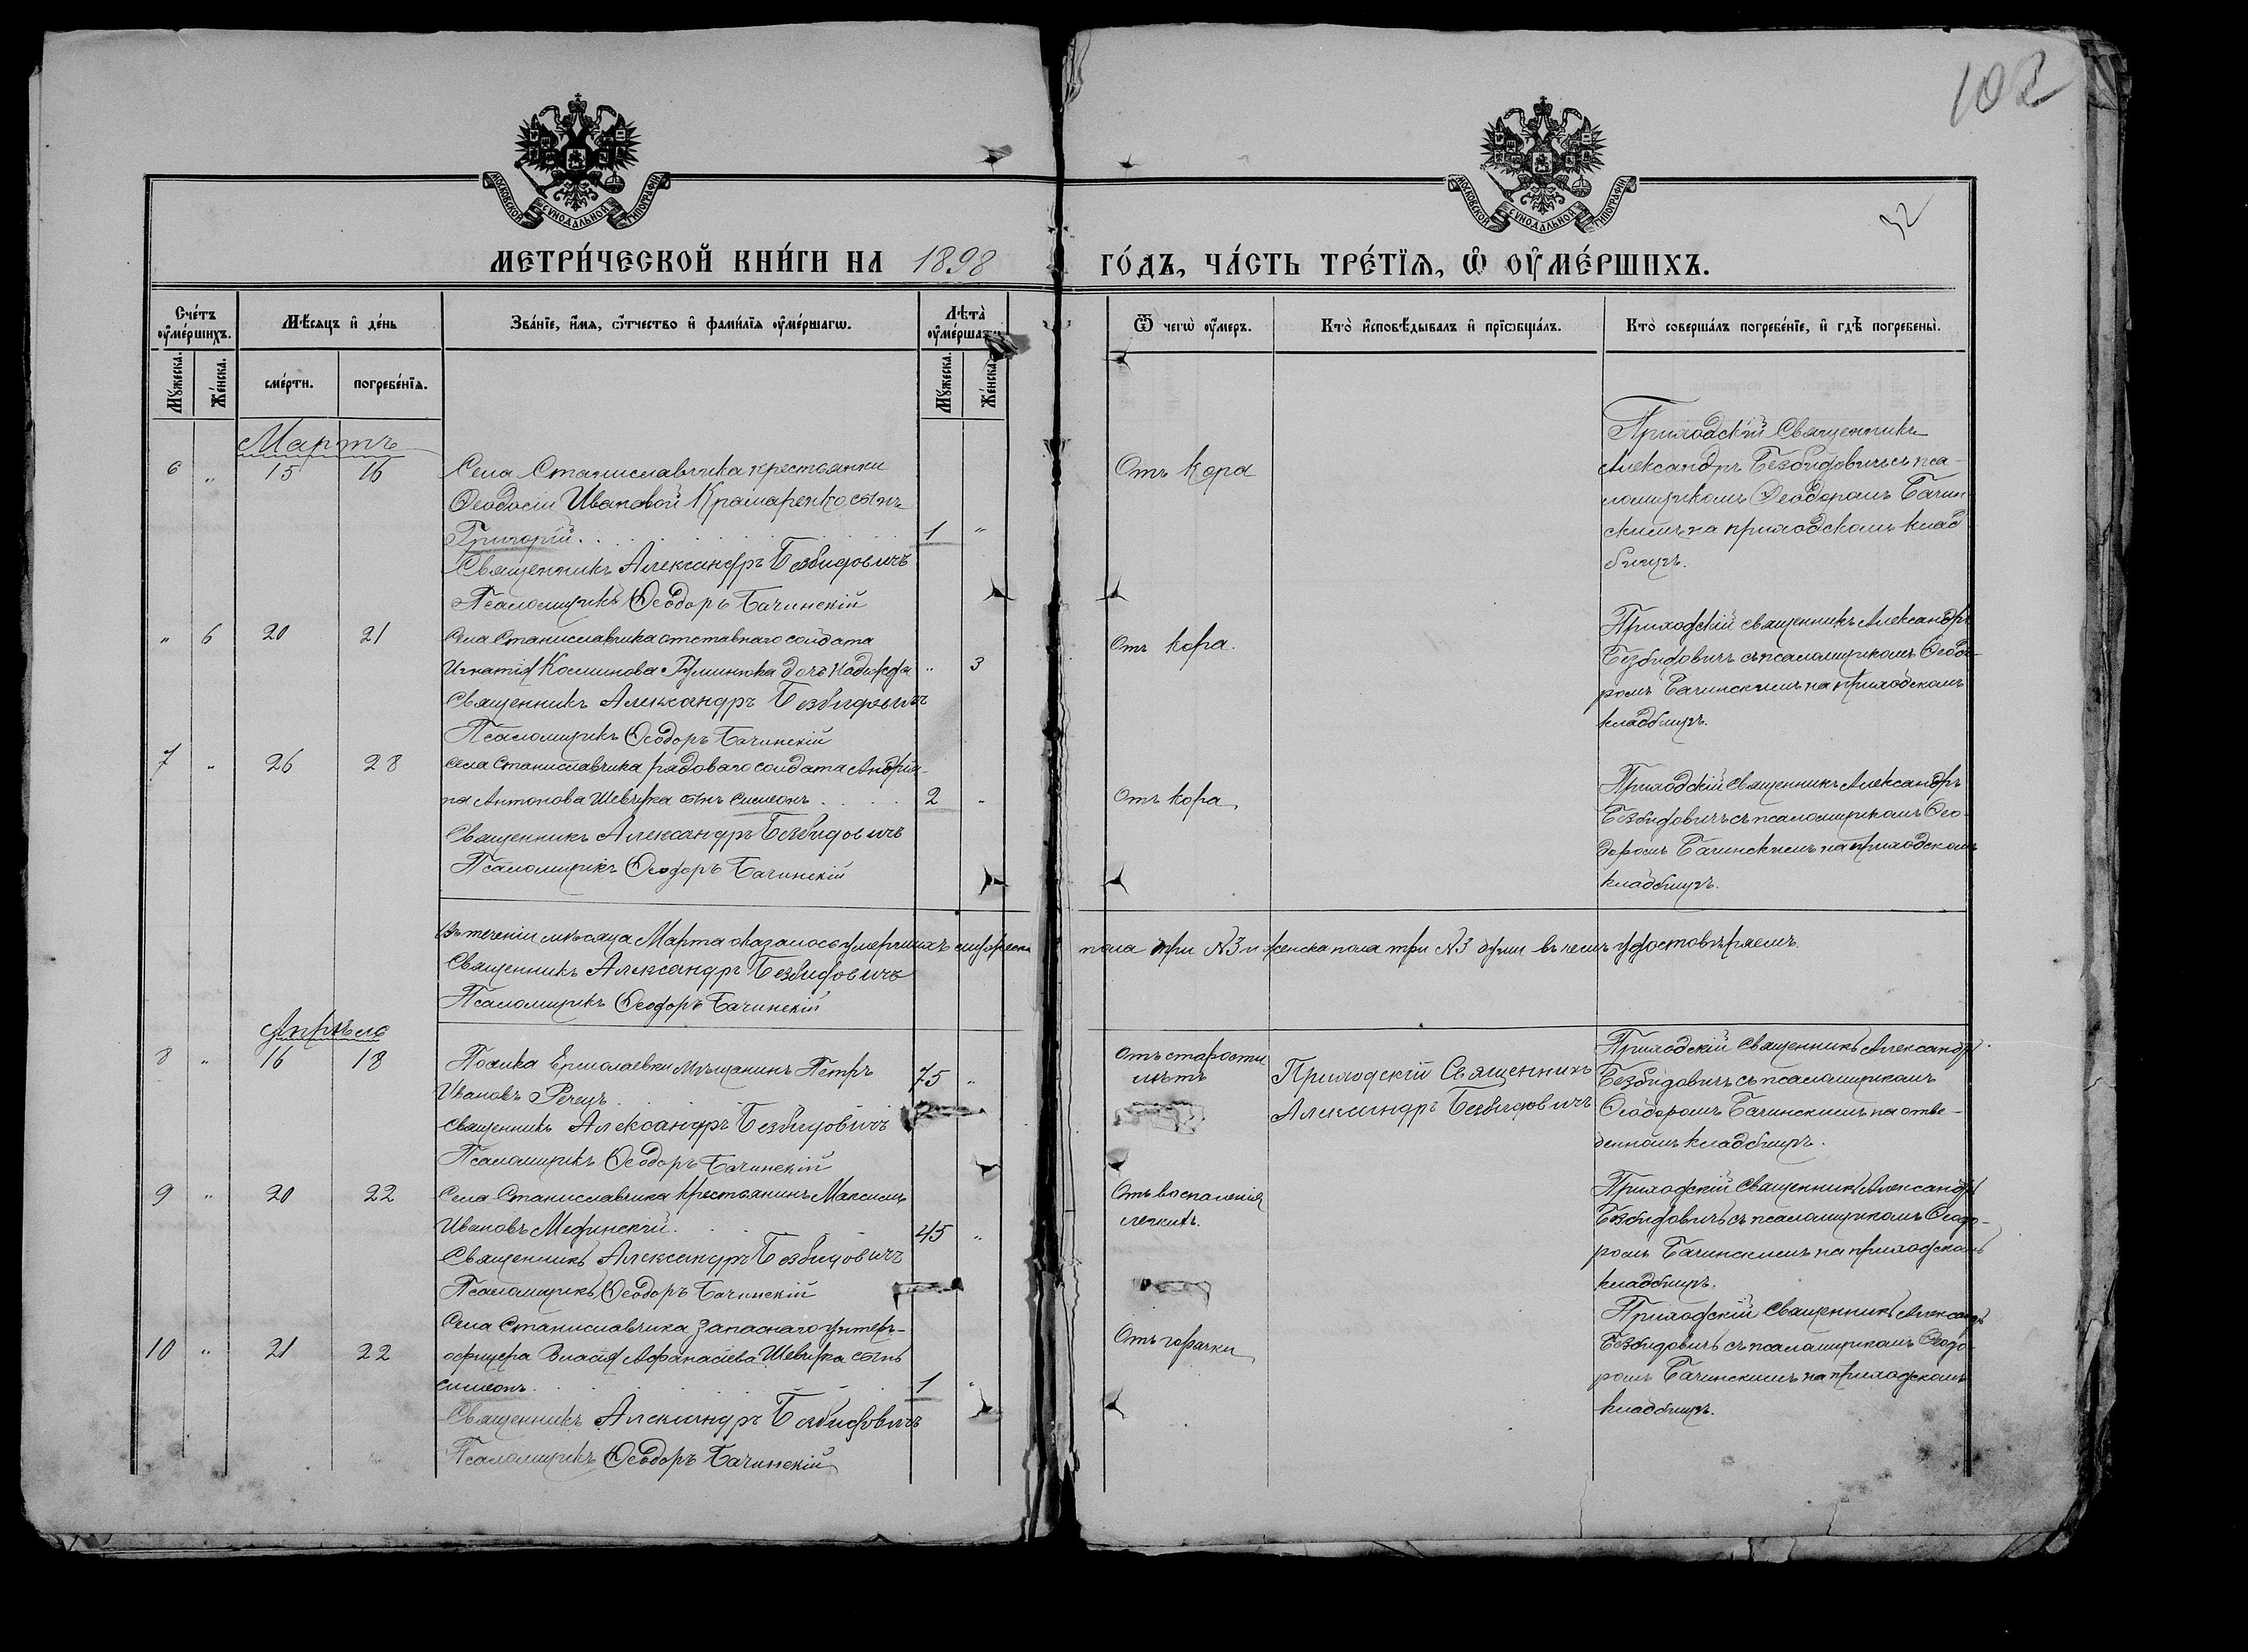 102
МОСКОВСКОЙ СУНОДАЛЬНОЙ ТИПОГРАФІИ
МОСКОВСКОЙ СУНОДАЛЬНОЙ ТИПОГРАФІИ
32
МЕТРИ́ЧЕСКОЙ КНИ́ГИ НА 1898 ГО́ДЪ, ЧА́СТЬ ТРЕ́ТЇѦ, Ѡ ОУМЕ́РШИХЪ.
Сче́тъ оумершихъ.
Мѣ́сяцъ и де́нь
Зва́нїе, и́мя, о́тчество и фами́лїя оуме́ршагѡ.
Лѣта̀ оуме́ршагѡ
Ѿ чегѡ̀ оу́меръ.
Кто̀ и҆сповѣ́дывалъ и҆ прїѡбща́лъ.
Кто̀ соверша́лъ погребе́нїе, и҆ гдѣ̀ погребены̀.
Му́жеска.
Же́нска.
сме́рти.
погребе́нїѧ.
Му́жеска.
Же́нска.
Мартъ
6 " 15 16
Села Станиславчика крестьянки
Ѳеодосіи Ивановой Крамаренко сынъ
Григорій. 1 "
Священникъ Александръ Безвидовичъ
Псаломщикъ Ѳеодоръ Бачинскій
Отъ кора
Приходскій Священникъ
Александръ Безвидовичъ съ пса-
ломщикомъ Ѳеодоромъ Бачин
скимъ на приходскомъ клад
бищѣ.
" 6 20 21
Села Станиславчика отставнаго солдата
Игнатія Косминова дочь Надежда " 3
Священникъ Александръ Безвидовичъ
Псаломщикъ Ѳеодоръ Бачинскій
Отъ кора.
Приходскій священникъ Александръ
Безвидовичъ съ псаломщикомъ Ѳеодо-
ромъ Бачинскимъ на приходскомъ
кладбищѣ.
7 " 26 28
Села Станиславчика рядоваго солдата Андрія-
на Антонова Шевчука сынъ Симеонъ 2 "
Священникъ Александръ Безвидовичъ
Псаломщикъ Ѳеодоръ Бачинскій
Отъ кора,
Приходскій Священникъ Александръ
Безвидовичъ съ псаломщикомъ Ѳео-
доромъ Бачинскимъ на приходскомъ
кладбищѣ.
Въ теченіи мѣсяца Марта оказалось умершихъ мужеска пола три №3 и женска пола три №3 души въ чемъ удостовѣряемъ.
Священникъ Александръ Безвидовичъ
Псаломщикъ Ѳеодоръ Бачинскій
Апрѣль
8 " 16 18
Поселка Ермолаевки мѣщанинъ Петръ
Ивановъ 75 "
Священникъ Александръ Безвидовичъ
Псаломщикъ Ѳеодоръ Бачинскій
Отъ старости
лѣтъ
Приходскій Священникъ
Александръ Безвидовичъ
Приходскій Священникъ Александръ
Безвидовичъ съ псаломщикомъ
Ѳеодоромъ Бачинскимъ на отве-
денномъ кладбищѣ.
9 " 20 22
Села Станиславчика крестьянинъ Максимъ
Ивановъ Мединскій. 45 "
Священникъ Александръ Безвидовичъ
Псаломщикъ Ѳеодоръ Бачинскій
Отъ воспаленія
легкихъ.
Приходскій Священникъ Александръ
Безвидовичъ съ псаломщикомъ Ѳеодо-
ромъ Бачинскимъ на приходскомъ
кладбищѣ.
Села Станиславчика запаснаго унтеръ-
10 " 21 22
офицера Власія Афанасіева Шевчука сынъ
Симеонъ. 1 "
Священникъ Александръ Безвидовичъ
Псаломщикъ Ѳеодоръ Бачинскій
Отъ горячки
Приходскій Священникъ Александръ
Безвидовичъ съ псаломщикомъ Ѳеодо-
ромъ Бачинскимъ на приходскомъ
кладбищѣ.